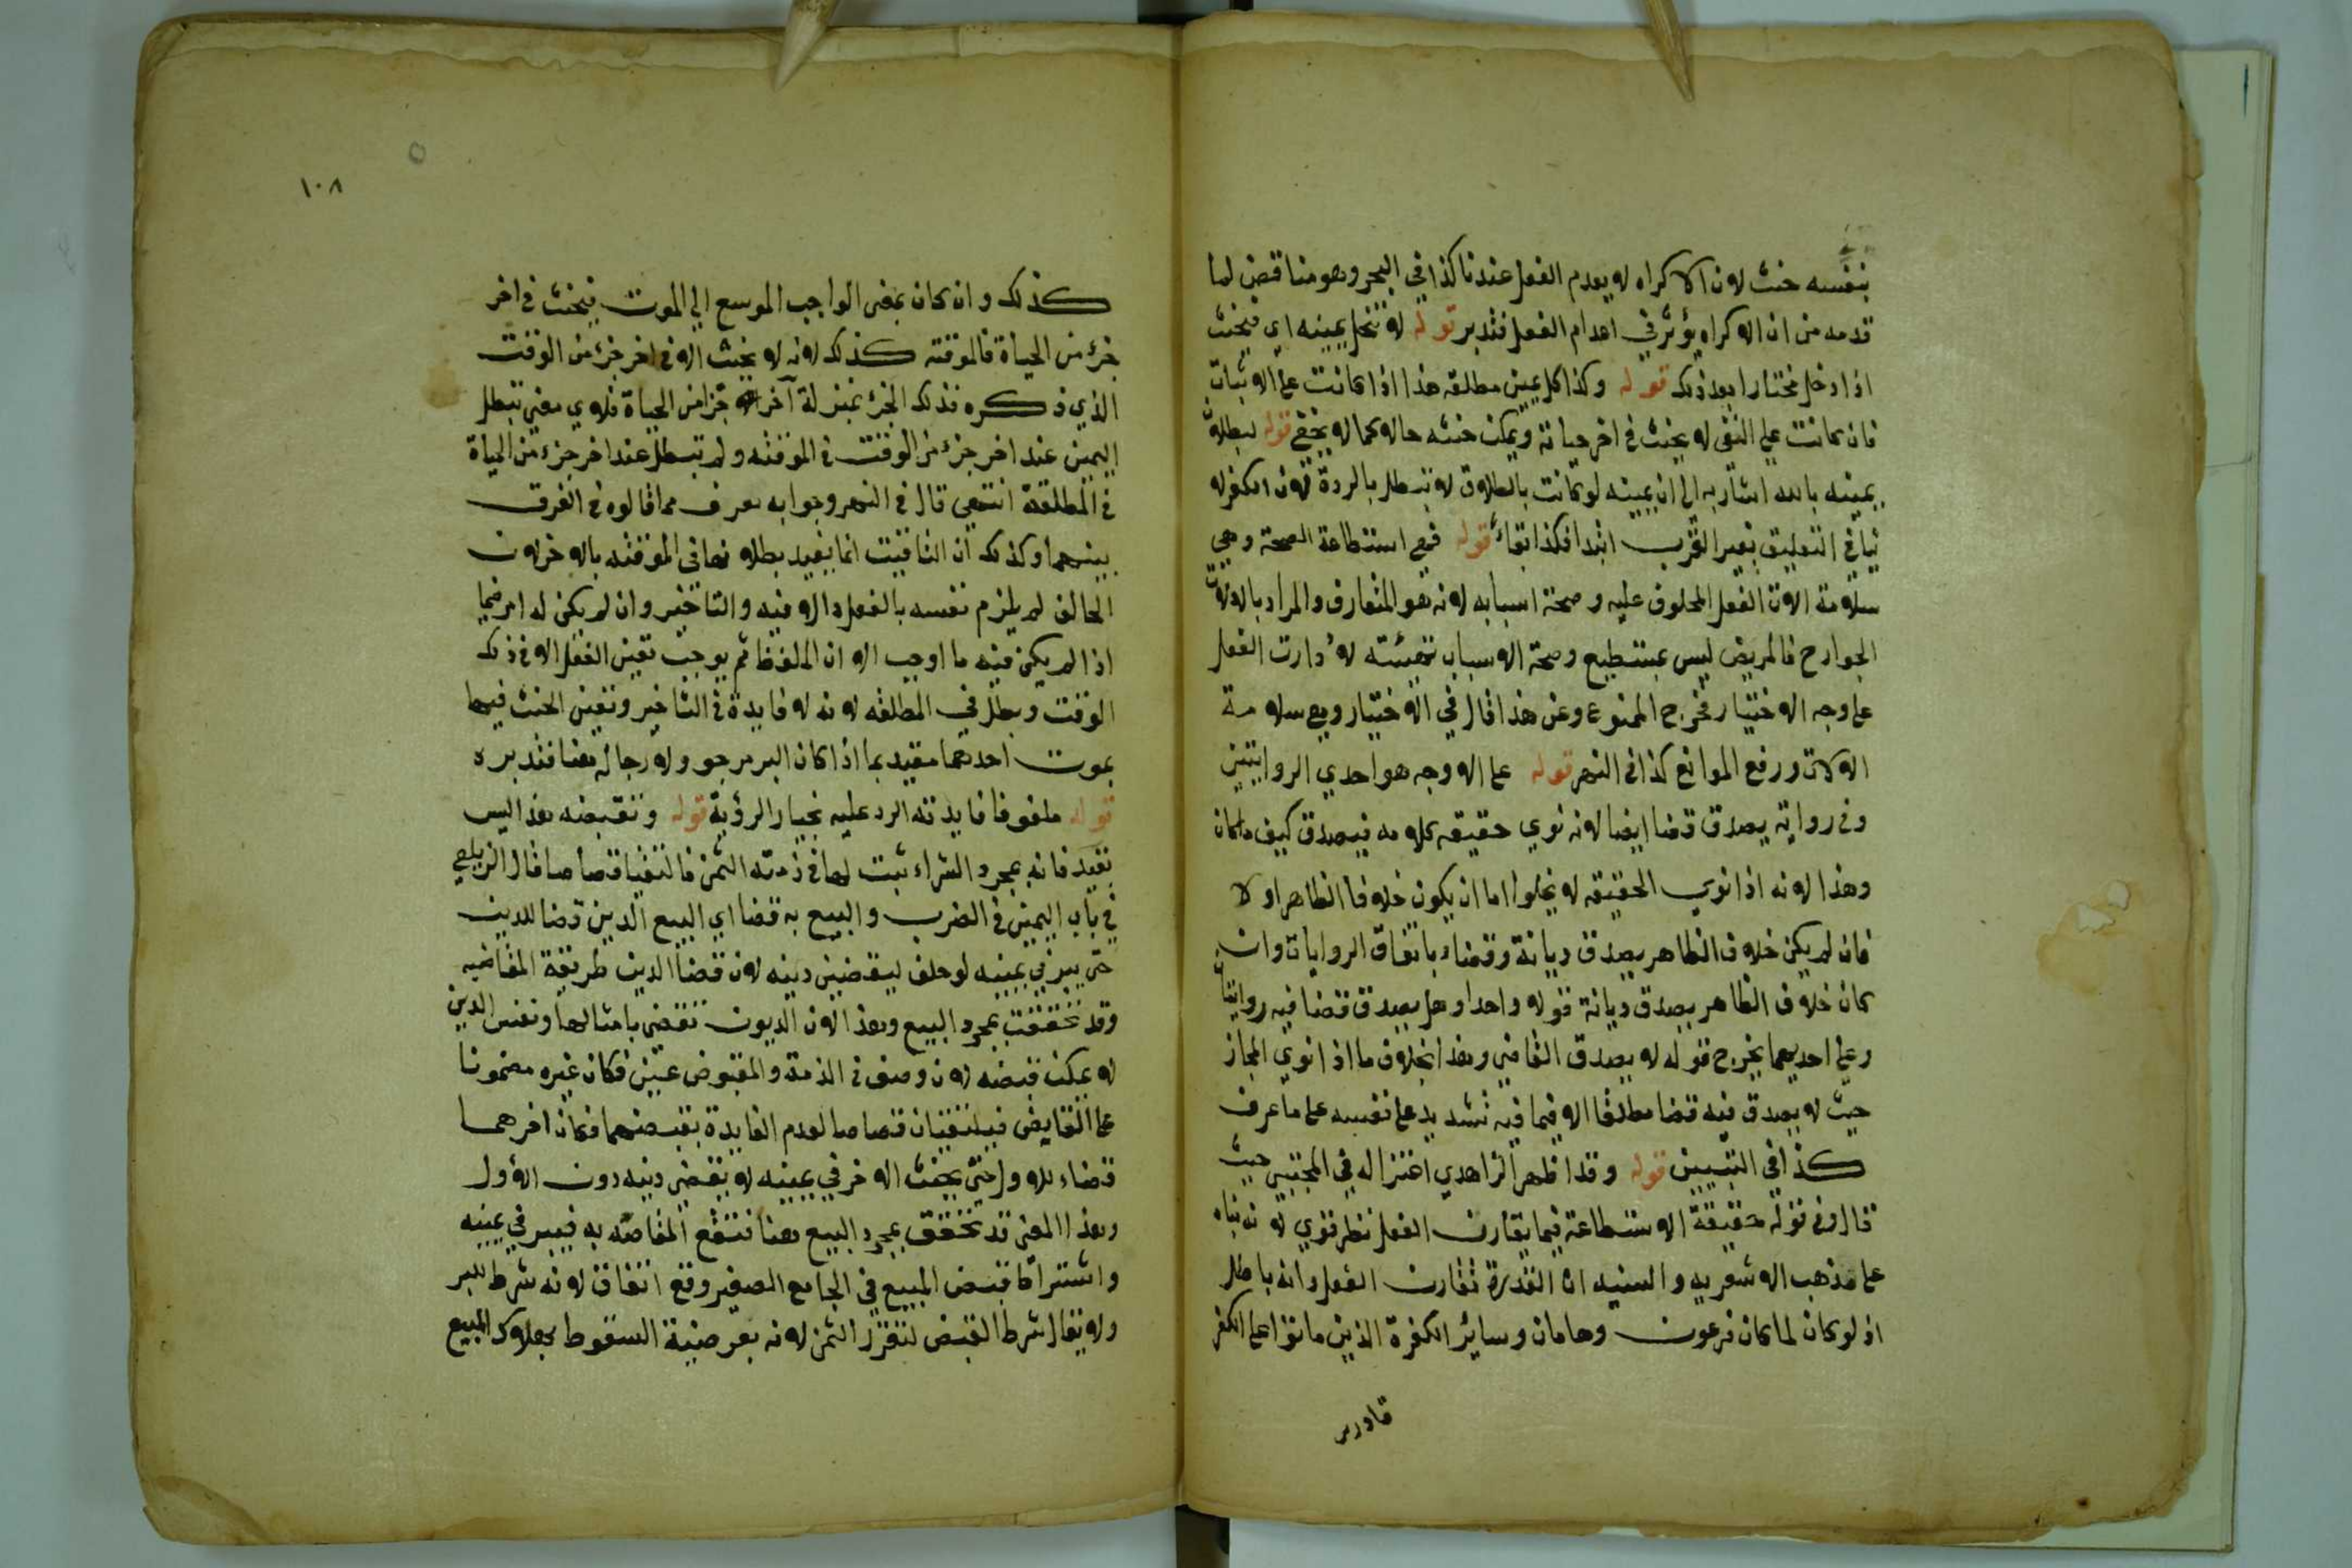 بنفسه حنث لان الاكراه لا يعدم الفعل عندنا كذا في البحر وهو مناقض لما
قدمه من ان الاكراه يؤثر في اعدام الفعل فتدبر قوله لا تنحل يمينه اي فيحنث
اذا دخل مختارا بعد ذلك قوله وكذا كل يمين مطلقه هذا اذا كانت على الاثبات
فان كانت على النفي لا يحنث في اخر حياته ويمكن حنثه حالا كما لا يخفى قوله لبطلان
يمينه بالله اشار به الى ان يمينه لو كانت بالطلاق لا تبطل بالردة لان الكفر لا
ينافي التعليق بغير القرب ابتدا فكذا بقاء قوله فهي استطاعة الصحة وهي
سلامة الات الفعل المحلوف عليه وصحة اسبابه لانه هو المتعارف والمراد بالالات
الجوارح فالمريض ليس بمستطيع وصحة الاسباب تهيئته لارادت الفعل
على وجه الاختيار فخرج الممنوع وعن هذا قال في الاختيار وهي سلامة
الالات ورفع الموانع كذا في النهر قوله على الاوجه هو احدي الروايتين
وفي رواية يصدق قضا ايضا لانه نوي حقيقه كلامه فيصدق كيف ما كان
وهذا لانه اذا نوي الحقيقه لا يخلوا اما ان يكون خلاف الظاهر او لا
فان لم يكن خلاف الظاهر يصدق ديانة وقضاء باتفاق الروايات وان
كان خلاف الظاهر يصدق ديانة قولا واحدا وهل يصدق قضا فيه روايتان
وعلى احديهما يخرج قوله لا يصدق القاضي وهذا بخلاف ما اذا نوي المجاز
حيث لا يصدق فيه قضا مطلقا الا فيما فيه تشديد على نفسه على ما عرف
كذا في التبيين قوله وقد اظهر الزاهدي اعتزاله في المجتبى حيث
قال وفي قوله حقيقة الاستطاعة فيما يقارن الفعل نظر قوي لانه بناه
على مذهب الاشعريه والسنيه ان القدرة تقارن الفعل وانه باطل
اذ لو كان لما كان فرعون وهامان وسائر الكفرة الذين ماتوا على الكفر
قادرين
١٠٨
كذلك وان كان بمعنى الواجب الموسع الي الموت فيحنث في اخر
جزء من الحياة فالموقته كذلك لانه لا يحنث الا في اخر جزء من الوقت
الذي ذكره فذلك الجزء بمنزلة آخر جزا من الحياة فلاي معنى تبطل
اليمين عند اخر جزء من الوقت في الموقته ولم تبطل عند اخر جزء من الحياة
في المطلقة انتهى قال في النهر وجوابه يعرف مما قالوه في الفرق
بينهما وكذلك ان التاقيت انما يفيد بطلانها في الموقته بالاخر لان
الحالف لم يلزم نفسه بالفعل الا فيه والتاخير وان لم يكن له امر فيما
اذا لم يكن فيه ما اوجب الا ان الملفظ ثم يوجب تعين الفعل الا في ذلك
الوقت وبطل في المطلقه لانه لا فايدة في التاخير وتعين الحنث فيهما
بموت احدهما مقيد بما اذا كان البر مرجو ولا رجا له هنا فتدبره
قوله ملفوفا فايدته الرد عليه بخيار الرؤية قوله ونقبضه هذا ليس
بقيد فانه بمجرد الشراء ثبت لها في ذمته الثمن فالتقيا قصاصا قال الزيلعي
في باب اليمين في الضرب والبيع به قضا اي البيع الدين قضا للدين
حتى يبر في يمينه لو حلف ليقضين دينه لان قضا الدين طريقة المقاضيه
وقد تحققت بمجرد البيع وهذا لان الديون تقضى بامثالها ونفس الدين
لا يمكن قبضه لانه وصف في الذمة والمقبوض عين فكان غيره مضمونا
على القابض فيلتقيان قصاصا لعدم الفايدة بقبضهما فكان اخرهما
قضاء للاول حتى يحنث الاخر في يمينه لا يقضي دينه دون الاول
وهذا المعنى قد تحقق بمجرد البيع هنا فتقع المقاصه به فيبر في يمينه
واشتراط قبض المبيع في الجامع الصغير وقع اتفاق لانه شرط للبر
ولا يقال شرط القبض لتقرر الثمن لانه بعرضية السقوط بهلاك المبيع